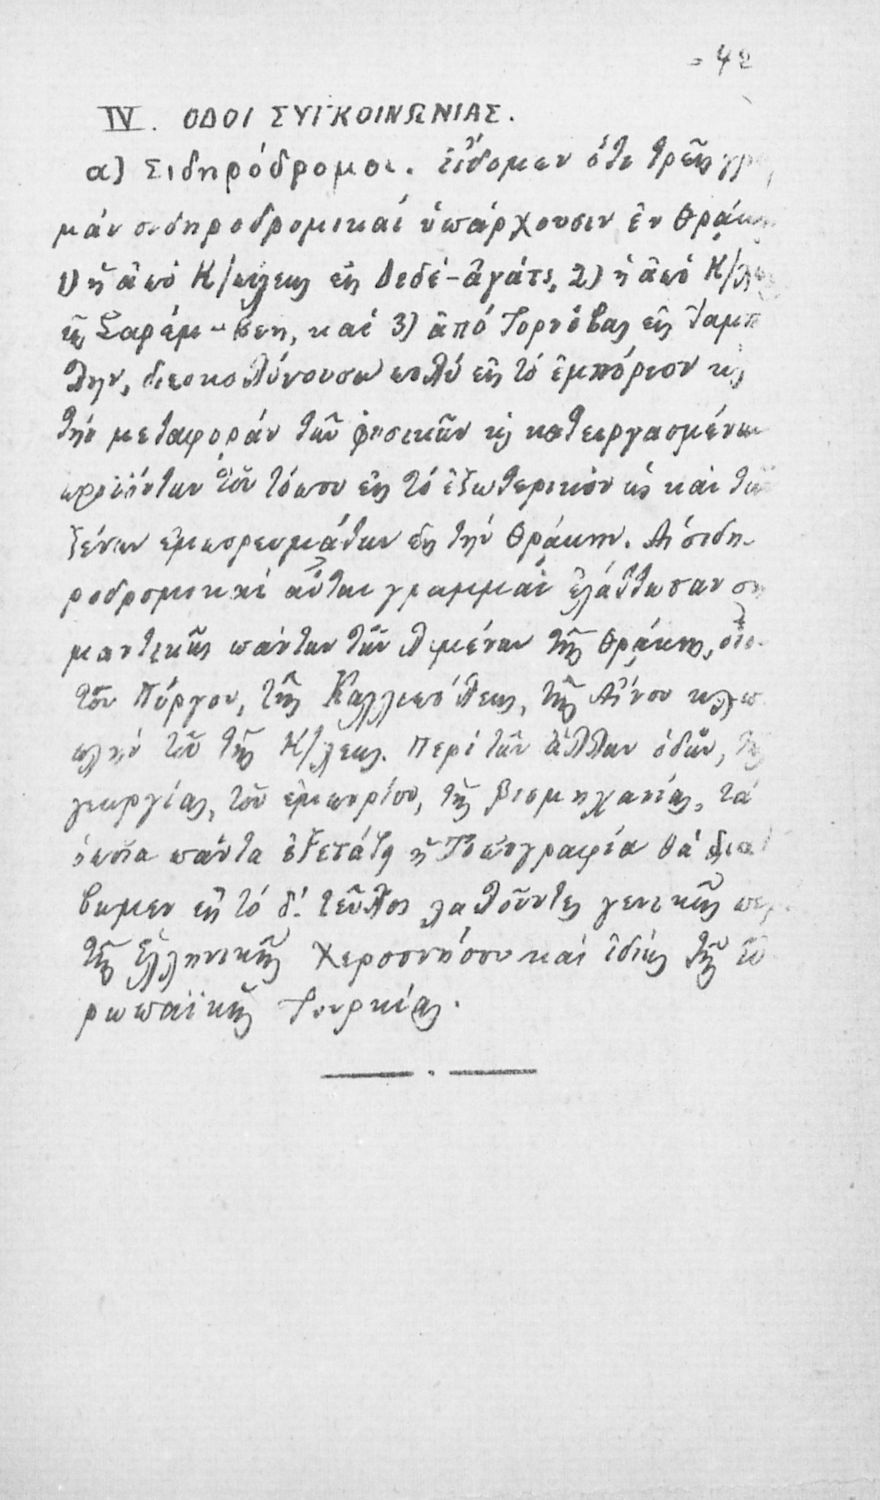 42
IV. ΟΔΟΙ ΣΥΓΚΟΙΝΩΝΙΑΣ.
α) Σιδηρόδρομοι. εἴδομεν ὅτι τρεῖς
μαὶ σιδηροδρομικαί ὑπάρχουσιν ἐν Θράκῃ
1) ἡ ἀπό Κ/πόλεως εἰς Δεδέ-ἀγάτς, 2) ἡ ἀπό
εἰς Σαρέμ-βεη, καί 3) ἀπό Τορνόβας εἰς Ἰάμπ
λην, διευκολύνουσαι πολύ εἰς τό ἐμπόριον κ
τήν μεταφοράν τῶν φυσικῶν κ κατειργασμένων
προϊόντων τοῦ τόπου εἰς τό ἐξωτερικόν ὡς καί τῶν
ξένων ἐμπορευμάτων εἰς τήν Θράκην. Αἱ σιδη-
ροδρομικαί αὗται γραμμαί ἐλάττωσαν ση
μαντικῶς πάντων τῶν λιμένων τῆς Θράκης,
τοῦ Πύργου, τῆς Καλλιπόλεως, τῆς Αἴνου
πλήν τοῦ τῆς Κ/λεως. Περί τῶν ἄλλων ὁδῶν, τῆς
γεωργίας, τοῦ ἐμπορίου, τῆς βιομηχανίας, τά
ὁποῖα πάντα ἐξετάζῃ ἡ Τοπογραφία θά δια
βωμεν εἰς τό δ΄. τεῦχος λαλοῦντες γενικῶς πε
τῆς Ἑλληνικῆς Χερσονήσου καί ἰδίως τῆς Εὐ
ρωπαϊκῆς Τουρκίας.